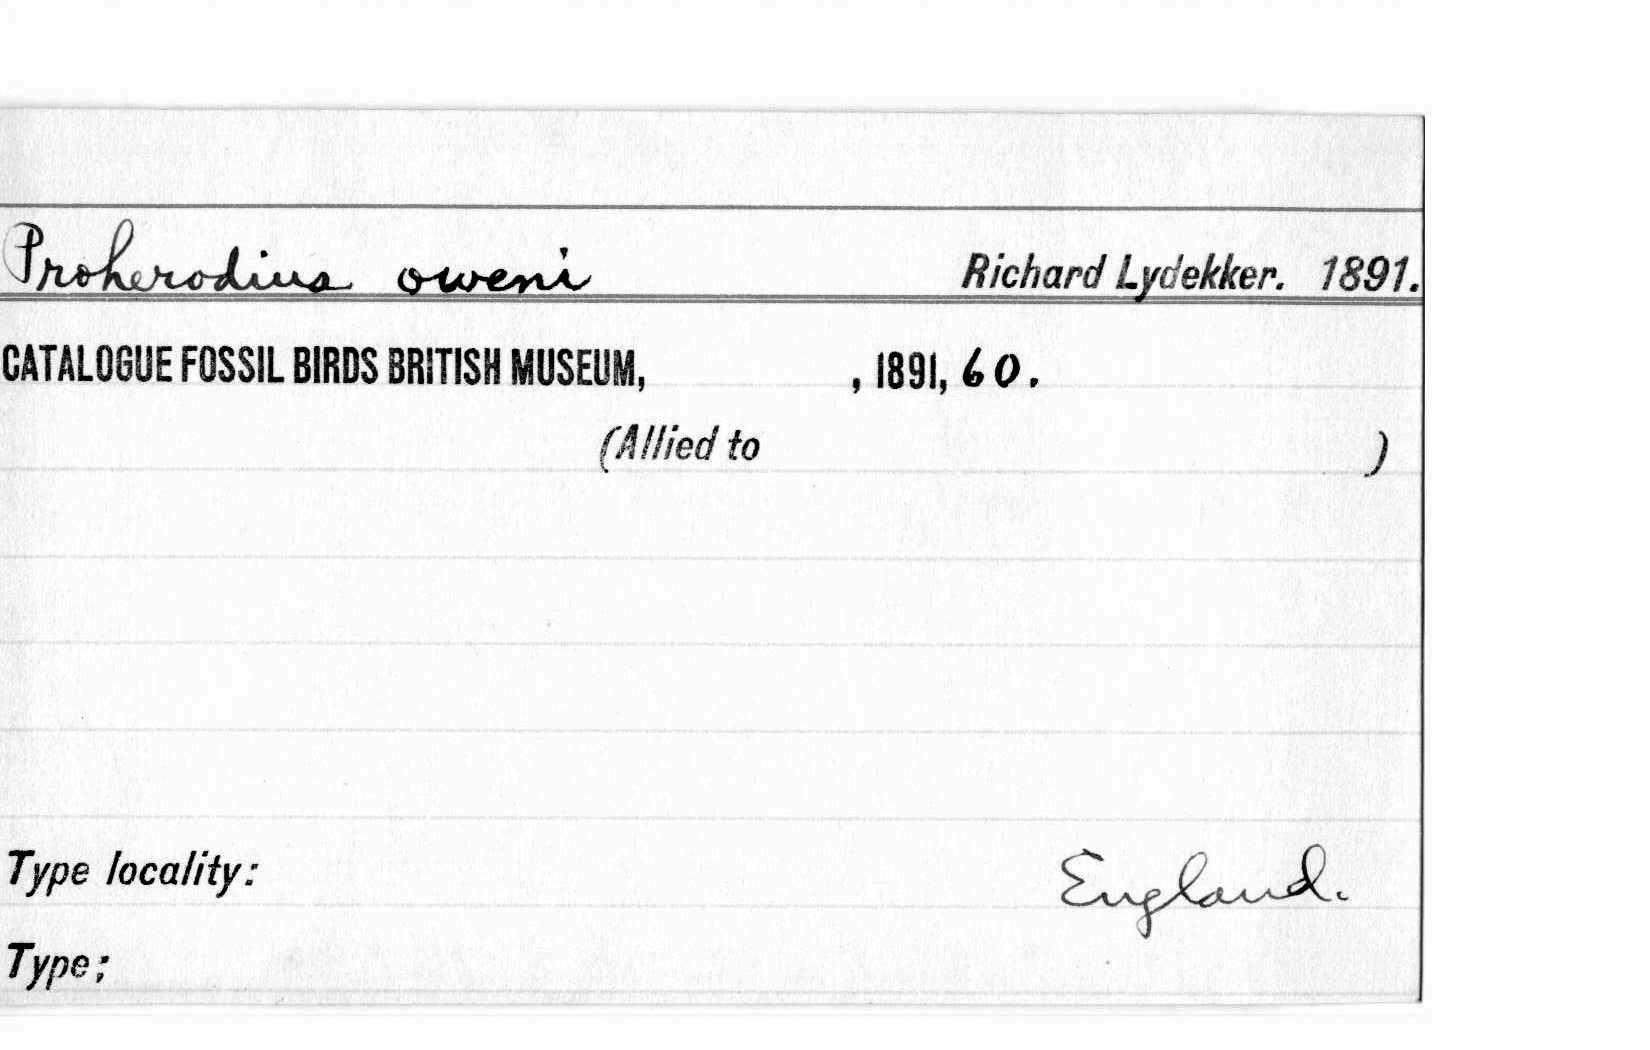 Proherodius oweni Richard Lydekker. 1891.
CATALOGUE FOSSIL BIRDS BRITISH MUSEUM, , 1891, 60.
(Allied to )
Type locality: England.
Type: